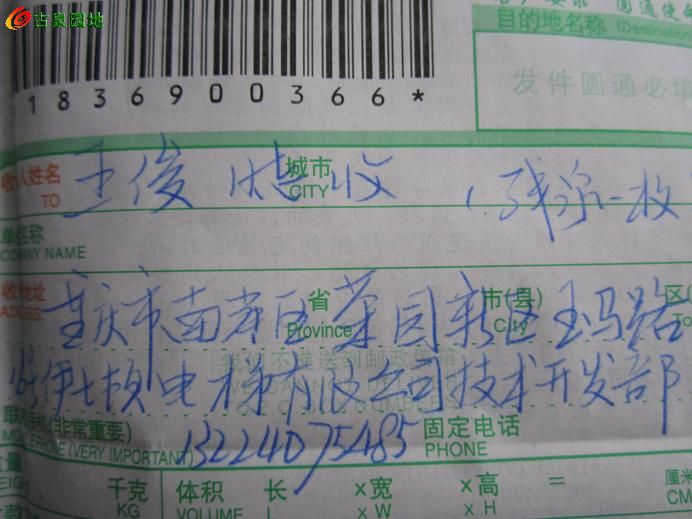 古泉园地
目的地名称 (Destination
发件圆通必填
1836900366*
收件人姓名 王俊 城市 收
TO CITY
单位名称
COMPANY NAME
收件地址 省 市(县) 区(
ADDRESS Province City To
重庆市南岸区茶园新区玉马路
伊士顿电梯有限公司技术开发部
我们不递送到邮政信箱
联系电话(非常重要) 固定电话
MOBILE PHONE (VERY IMPORTANT) 13224075485 PHONE
千克 体积 长 x宽 x高 = 厘米
KG VOLUME L x W x H CM